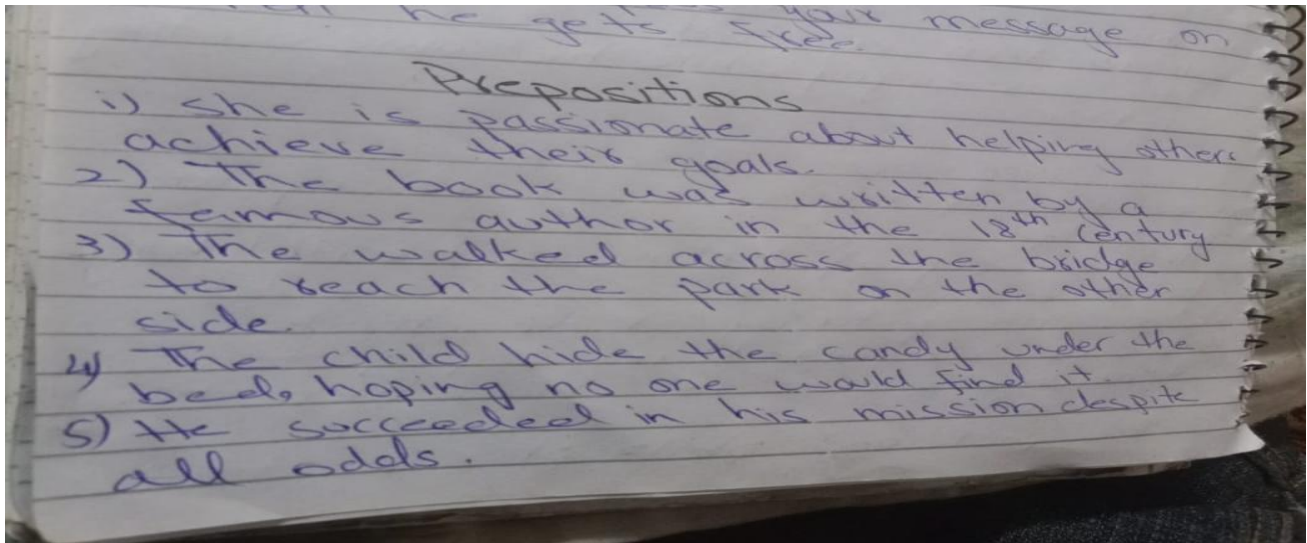 he gets your message on
free.
Prepositions
1) She is passionate about helping others
achieve their goals.
2) The book was written by a
famous author in the 18th century
3) The walked across the bridge
to reach the park on the other
side.
4) The child hide the candy under the
bed, hoping no one would find it.
5) He succeeded in his mission despite
all odds.